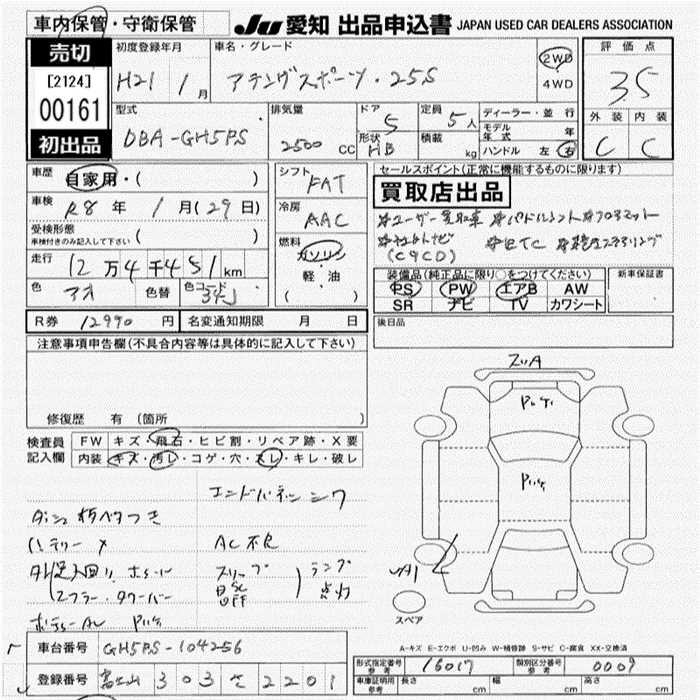 車内保管・守衛保管
JU 愛知 出品申込書 JAPAN USED CAR DEALERS ASSOCIATION
売切
[2124]
00161
初出品
初度登録年月
H21 1月
車名・グレード
アテンザスポーツ・25S
2WD
4WD
評価点
3.5
外装 内装
C C
型式
DBA-GH5PS
排気量
2500 CC
ドア 5
形状 HB
定員 5人
積載 kg
ディーラー・並行
モデル年式 年
ハンドル 左 右
車歴 自家用・( )
車検 R8年 1月(29日)
受検形態
車検付きのみ記入して下さい ( )
走行 12万4千451km
色 アオ 色替 色コード 34J
シフト FAT
冷房 AAC
燃料
ガソリン
軽・油
( )
セールスポイント(正常に機能するものに限ります)
買取店出品
※ユーザー買取車 ※パドルシフト ※フロアマット
※社外ナビ ※ETC ※革巻ステアリング
(C9CD)
装備品(純正品に限り○をつけてください)
PS PW エアB AW
SR ナビ TV カワシート
新車保証書
R券 12990円 名変通知期限 月 日
後日品
注意事項申告欄(不具合内容等は具体的に記入して下さい)
修復歴 有 (箇所
検査員記入欄
FW キズ・飛石・ヒビ割・リペア跡・X要
内装 キズ・汚レ・コゲ・穴・スレ・キレ・破レ
エンドパネルシワ
ダッシュ板ベタつき
バッテリー×
AC不良
マフラー・タワーバー
ランプ
点灯
スペア
A-キズ E-エクボ U-凹み W-補修跡 S-サビ C-腐食 XX-交換済
車台番号 GH5PS-104256
登録番号 富士山 303 さ 2201
形式指定番号 参考 16017 類別区分番号 参考 0009
車庫証明用 参考 長さ cm 幅 cm 高さ cm